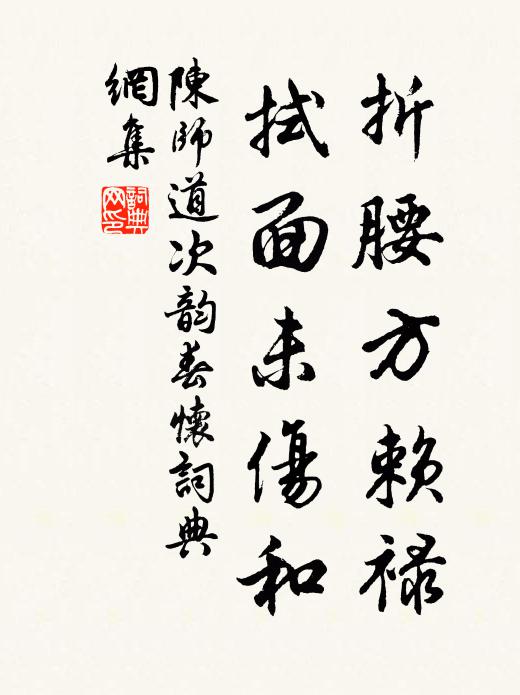 折腰方赖禄
拭面未傷和
陳師道次韵春懷詞典
網集
詞典
网印